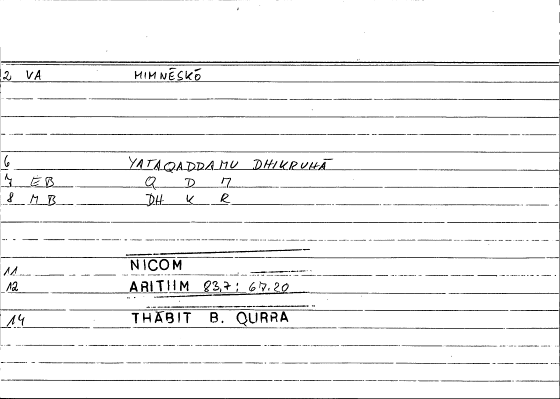 2 VA MIMNĒSKŌ
6 YATAQADDAMU DHIKRUHĀ
7 EB Q D M
8 MB DH K R
11 NICOM
12 ARITIIM 83,7; 67.20
14 THĀBIT B. QURRA